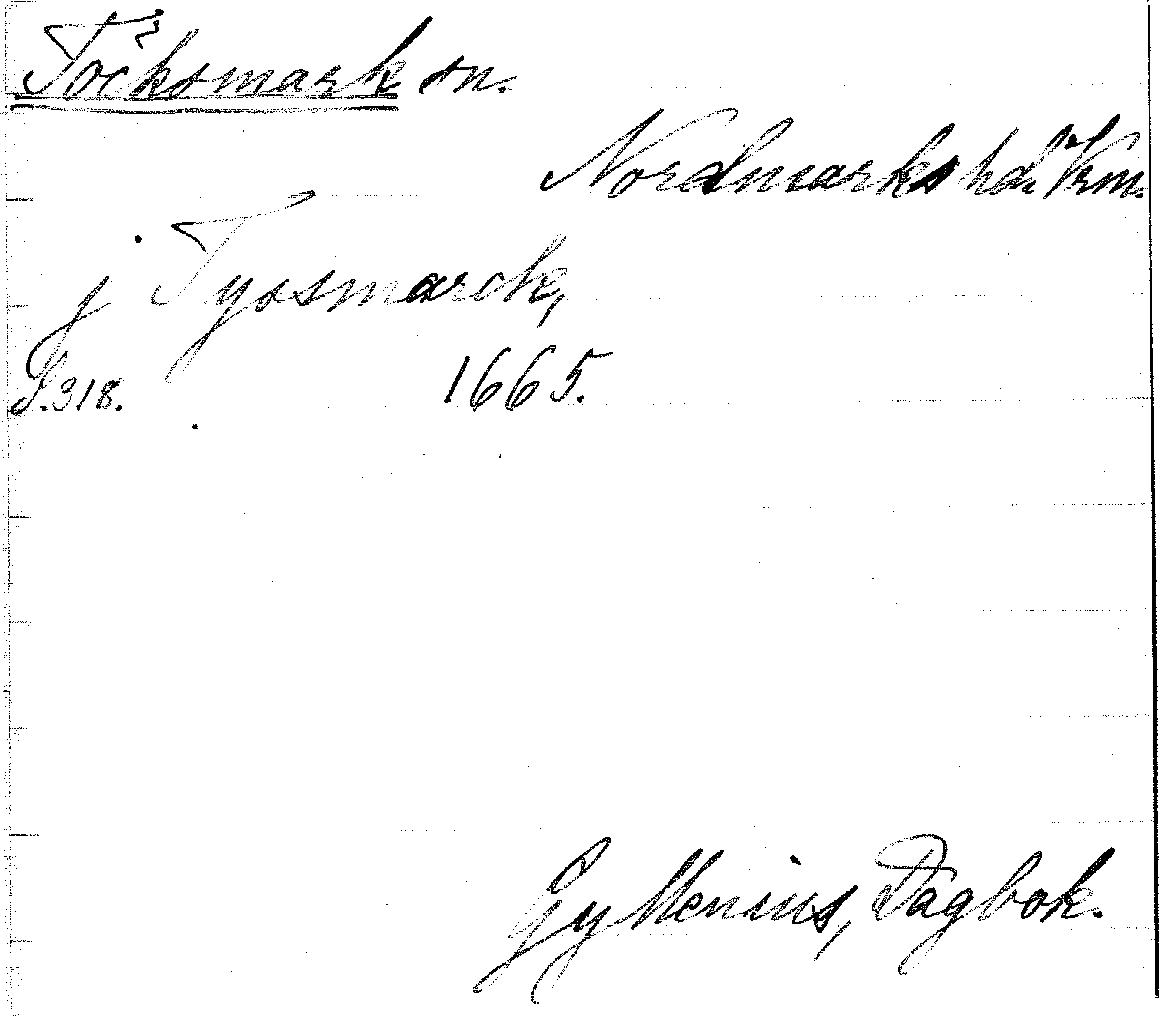 Töcksmark sn.
Nordmarks hd. Vrm.
j Tyosmarck,
S. 318. 1665.
Gyllenius, Dagbok.